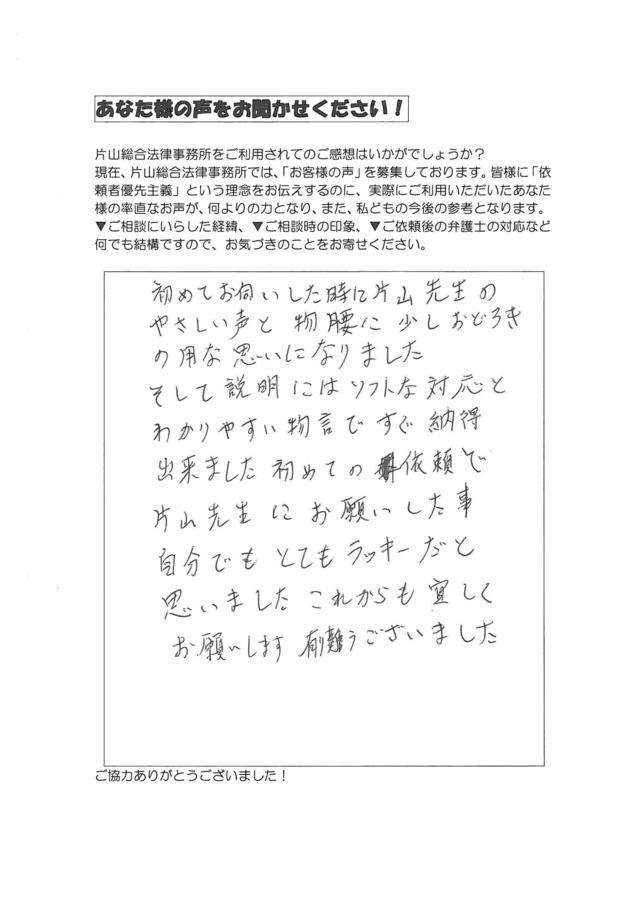 あなた様の声をお聞かせください！
片山総合法律事務所をご利用されてのご感想はいかがでしょうか？
現在、片山総合法律事務所では、「お客様の声」を募集しております。皆様に「依
頼者優先主義」という理念をお伝えするのに、実際にご利用いただいたあなた
様の率直なお声が、何よりの力となり、また、私どもの今後の参考となります。
▼ご相談にいらした経緯、▼ご相談時の印象、▼ご依頼後の弁護士の対応など
何でも結構ですので、お気づきのことをお寄せください。
初めてお伺いした時に片山先生の
やさしい声と物腰に少しおどろき
の用な思いになりました
そして説明にはソフトな対応と
わかりやすい物言ですぐ納得
出来ました初めての依頼で
片山先生にお願いした事
自分でもとてもラッキーだと
思いましたこれからも宜しく
お願いします有難うございました
ご協力ありがとうございました！